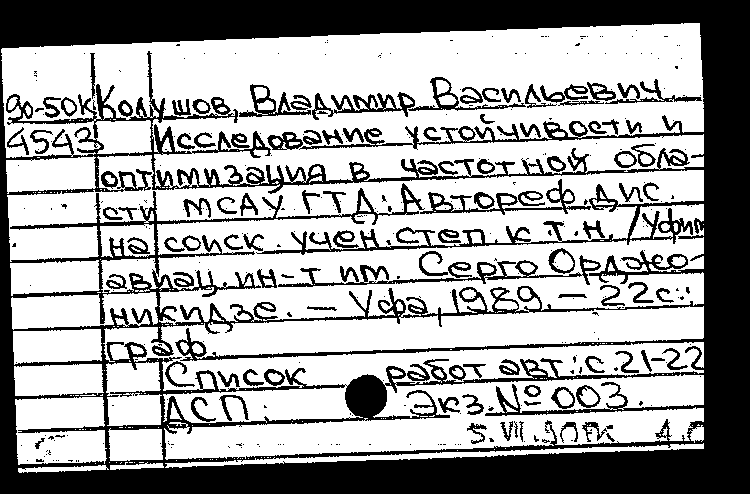 90-50к Колушов, Владимир Васильевич
4543 Исследование устойчивости и
оптимизация в частотной обла-
сти МСАУ ГТД: Автореф. дис.
на соиск. учен. степ. к т.н. /Уфим
авиац. ин-т им. Серго Орджо-
никидзе. — Уфа, 1989. — 22с.:
граф.
Список работ авт.: с.21-22
ДСП. Экз.№ 003.
5.VII.90